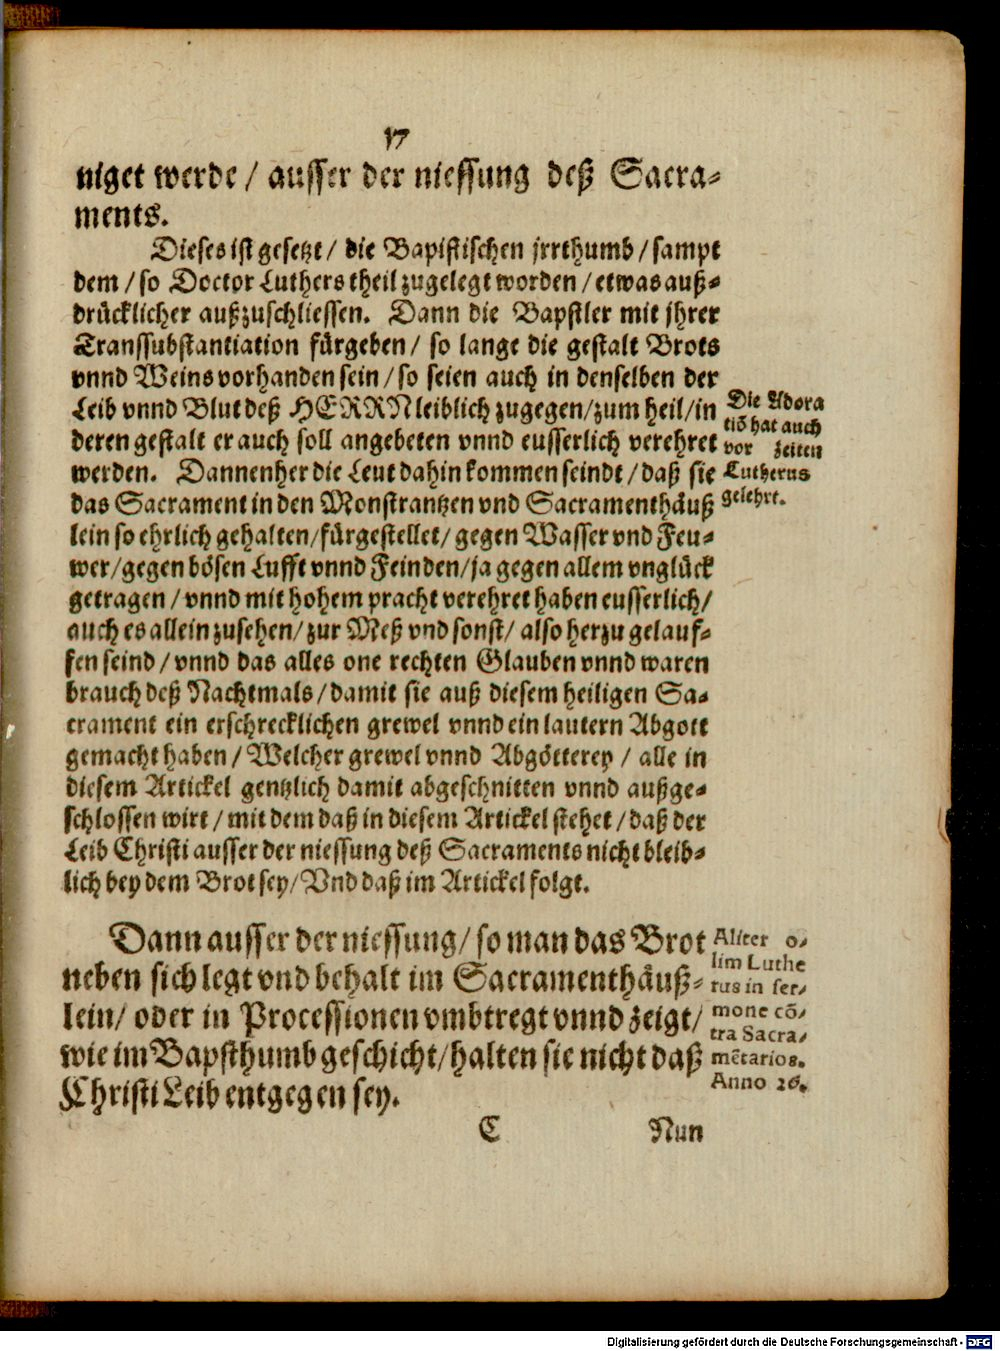 17
niget werde / ausser der niessung deß Sacra⸗
ments.
Dieses ist gesetzt / die Bapistischen jrrthumb / sampt
dem / so Doctor Luthers theil zugelegt worden / etwas auß⸗
drücklicher außzuschliessen. Dann die Bapstler mit jhrer
Transsubstantiation fürgeben / so lange die gestalt Brots
vnnd Weins vorhanden sein / so seien auch in denselben der
Leib vnnd Blut deß HERRN leiblich zugegen / zum heil / in
deren gestalt er auch soll angebeten vnnd eusserlich verehret
werden. Dannenher die Leut dahin kommen seindt / daß sie
das Sacrament in den Monstrantzen vnd Sacramenthäuß
lein so ehrlich gehalten / fürgestellet / gegen Wasser vnd Feu⸗
wer / gegen bösen Lufft vnnd Feinden / ja gegen allem vnglück
getragen / vnnd mit hohem pracht verehret haben eusserlich /
auch es allein zusehen / zur Meß vnd sonst / also herzu gelauf⸗
fen seind / vnnd das alles one rechten Glauben vnnd waren
brauch deß Nachtmals / damit sie auß diesem heiligen Sa⸗
crament ein erschrecklichen grewel vnnd ein lautern Abgott
gemacht haben / Welcher grewel vnnd Abgötterey / alle in
diesem Artickel gentzlich damit abgeschnitten vnnd außge⸗
schlossen wirt / mit dem daß in diesem Artickel stehet / daß der
Leib Christi ausser der niessung deß Sacraments nicht bleib⸗
lich bey dem Brot sey / Vnd daß im Artickel folgt.
Die Adora
tiõ hat auch
vor zeiten
Lutherus
gelehrt.
Dann ausser der niessung / so man das Brot
neben sich legt vnd behalt im Sacramenthäuß⸗
lein / oder in Processionen vmbtregt vnnd zeigt /
wie im Bapsthumb geschicht / halten sie nicht daß
Christi Leib entgegen sey.
Aliter o⸗
lim Luthe
rus in ser⸗
mone cõ⸗
tra Sacra⸗
mẽtarios.
Anno 26.
C Nun
Digitalisierung gefördert durch die Deutsche Forschungsgemeinschaft - DFG